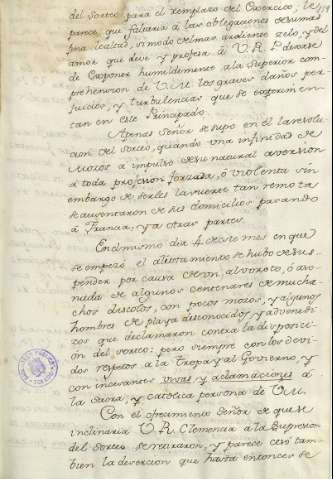 del Sorteo para el remplazo del Exercicio, le
parece, que faltaria á las obligaciones de suma
fina lealtad, si movido del mas ardiente zelo, y del
amor que deve y profesa á V. R. P. dexase
de exponer humildemente á la Superior com-
prehencion de V. M. los graves daños, per-
juicios, y turbulencias que se experimen-
tan en este Principado.
Apenas Señor se supo en él la resolu-
cion del Sorteo, quando una infinidad de
Mozos á impulso de su natural aversion
á toda profesion forzada, ó violenta sin
embargo de serles la suerte tan remota
se ausentaron de sus domicilios pasando
á Francia, y á otras partes.
En el mismo dia 4 de este mes en que
se empezó el alistamiento se hubo de sus-
pender por causa de un alvoroto, ó aso-
nada de algunos centenares de mucha-
chos discolos, con pocos mozos, y algunos
hombres de playa desconocidos, y advendi-
zos que declamaron contra la disposici-
on del sorteo: pero siempre con los devi-
dos respetos á la Tropa, y al Govierno, y
con incesantes vivas, y aclamaciones á
la Sacra, y Catolica persona de V. M.
Con el ofrecimiento Señor de que se
inclinaria V. R. Clemencia á la supresion
del Sorteo se retiraron, y parece cesó tam-
bien la desercion que hasta entonces se